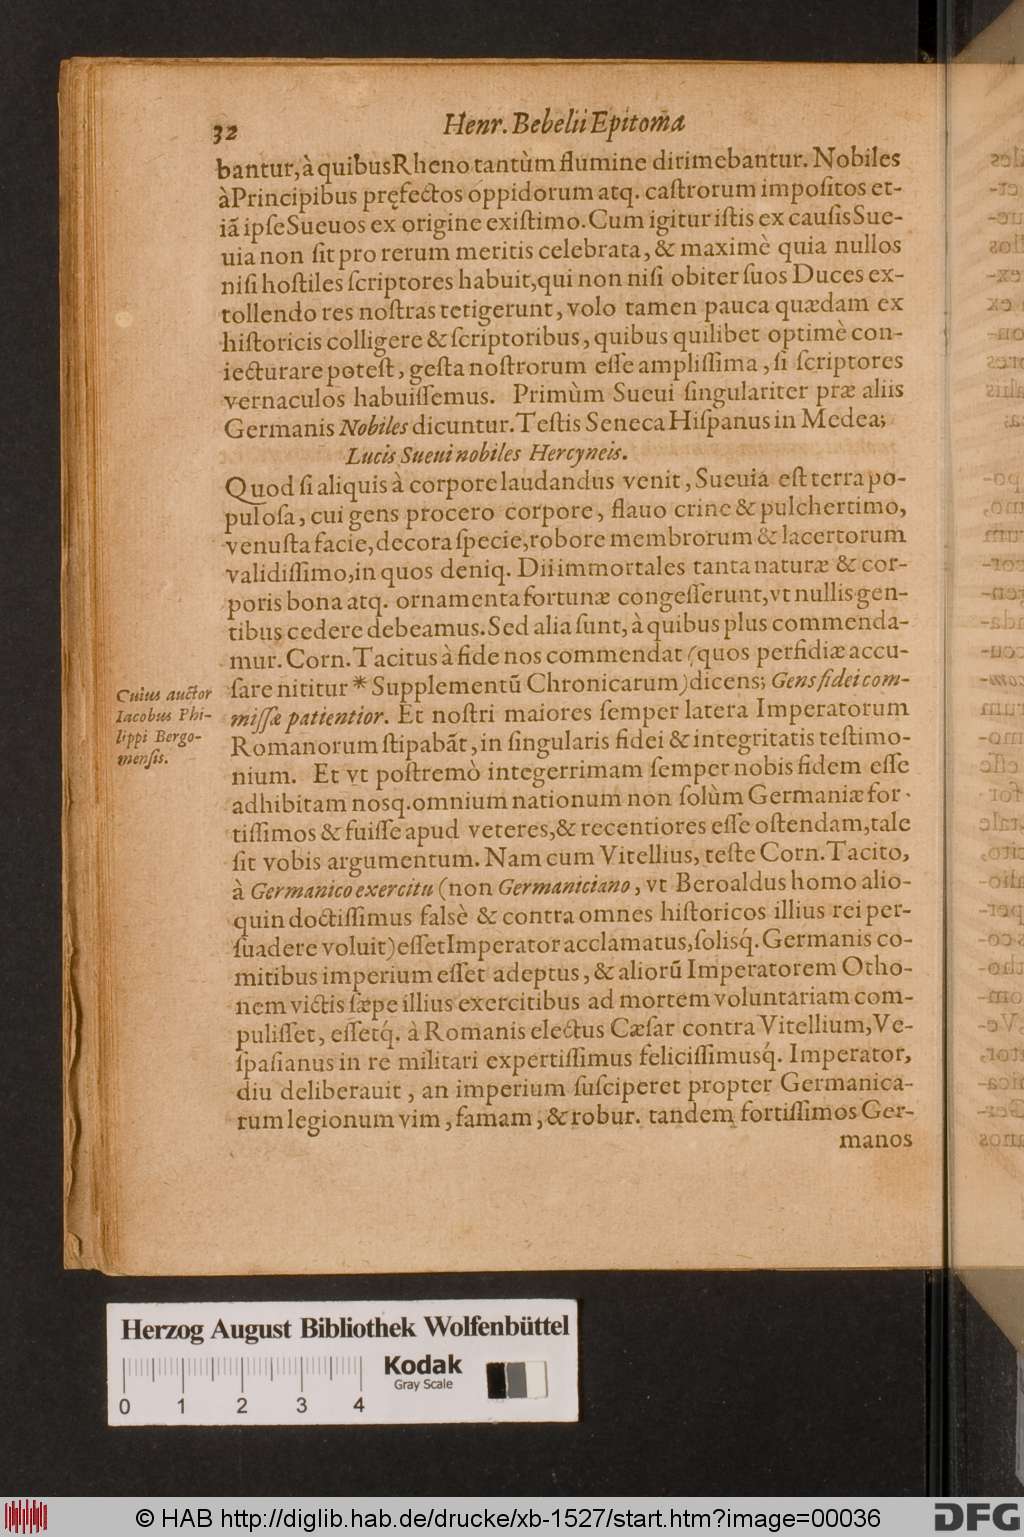 32 Henr. Bebelii Epitoma
bantur, à quibus Rheno tantùm flumine dirimebantur. Nobiles
à Principibus pręfectos oppidorum atq. caſtrorum impoſitos et-
iã ipſe Sueuos ex origine exiſtimo. Cum igitur iſtis ex cauſis Sue-
uia non ſit pro rerum meritis celebrata, & maximè quia nullos
niſi hoſtiles ſcriptores habuit, qui non niſi obiter ſuos Duces ex-
tollendo res noſtras tetigerunt, volo tamen pauca quædam ex
hiſtoricis colligere & ſcriptoribus, quibus quilibet optimè con-
iecturare poteſt, geſta noſtrorum eſſe ampliſſima, ſi ſcriptores
vernaculos habuiſſemus. Primùm Sueui ſingulariter præ aliis
Germanis Nobiles dicuntur. Teſtis Seneca Hiſpanus in Medea;
Lucis Sueui nobiles Hercyneis.
Quod ſi aliquis à corpore laudandus venit, Sueuia eſt terra po-
puloſa, cui gens procero corpore, flauo crine & pulchertimo,
venuſta facie, decora ſpecie, robore membrorum & lacertorum
validiſſimo, in quos deniq. Dii immortales tanta naturæ & cor-
poris bona atq. ornamenta fortunæ congeſſerunt, vt nullis gen-
tibus cedere debeamus. Sed alia ſunt, à quibus plus commenda-
mur. Corn. Tacitus à fide nos commendat (quos perfidiæ accu-
ſare nititur * Supplementũ Chronicarum) dicens; Gens fidei com-
miſſæ patientior. Et noſtri maiores ſemper latera Imperatorum
Romanorum ſtipabãt, in ſingularis fidei & integritatis teſtimo-
nium. Et vt poſtremò integerrimam ſemper nobis fidem eſſe
adhibitam nosq. omnium nationum non ſolùm Germaniæ for-
tiſſimos & fuiſſe apud veteres, & recentiores eſſe oſtendam, tale
ſit vobis argumentum. Nam cum Vitellius, teſte Corn. Tacito,
à Germanico exercitu (non Germaniciano, vt Beroaldus homo alio-
quin doctiſſimus falsè & contra omnes hiſtoricos illius rei per-
ſuadere voluit) eſſet Imperator acclamatus, ſolisq́. Germanis co-
mitibus imperium eſſet adeptus, & aliorũ Imperatorem Otho-
nem victis ſæpe illius exercitibus ad mortem voluntariam com-
puliſſet, eſſetq́. à Romanis electus Cæſar contra Vitellium, Ve-
ſpaſianus in re militari expertiſſimus feliciſſimusq́. Imperator,
diu deliberauit, an imperium ſuſciperet propter Germanica-
rum legionum vim, famam, & robur. tandem fortiſſimos Ger-
manos
Cuius auctor
Iacobus Phi-
lippi Bergo-
menſis.
Herzog August Bibliothek Wolfenbüttel
Kodak
Gray Scale
0 1 2 3 4
© HAB http://diglib.hab.de/drucke/xb-1527/start.htm?image=00036
DFG